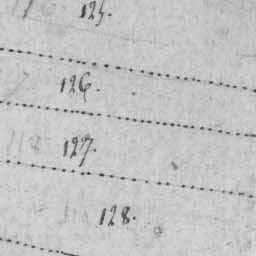 125.
126.
127.
128.